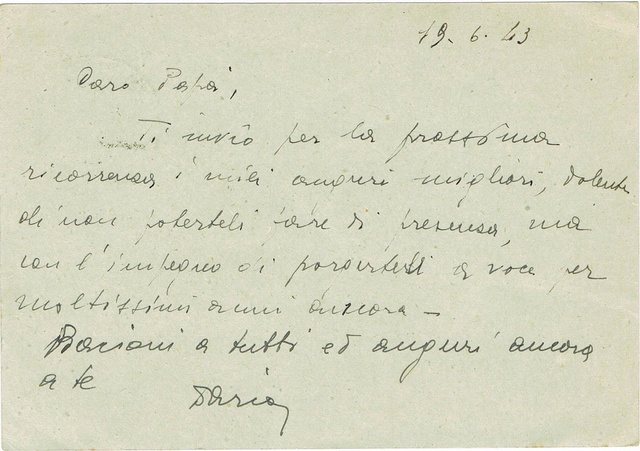 19. 6. 43
Caro Papà,
Ti invio per la prossima
ricorrenza i miei auguri migliori, dolente
di non poterteli fare di presenza, ma
con l'impegno di porgerteli a voce per
moltissimi anni ancora –
Bacioni a tutti ed auguri ancora
a te
Daria